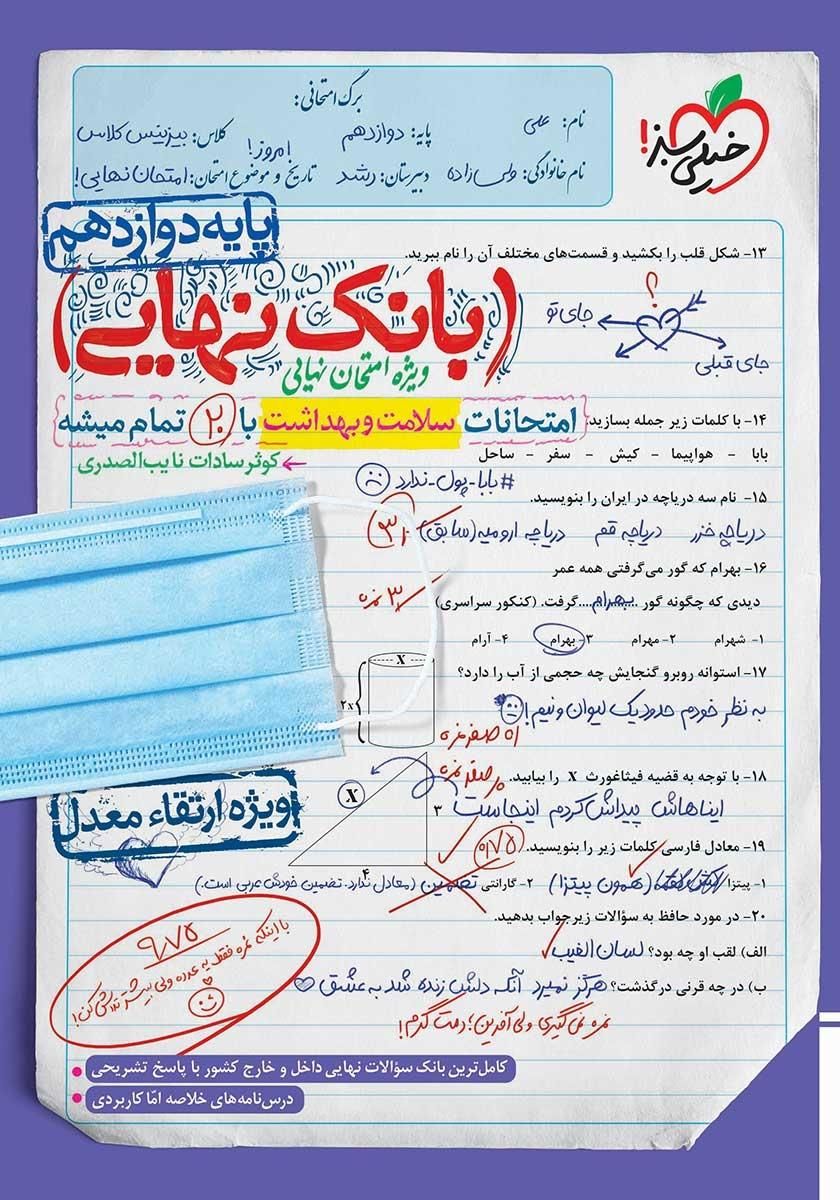 خیلی سبز!
برگ امتحانی:
نام: علی پایه: دوازدهم کلاس: بیزینس کلاس
نام خانوادگی: ولی زاده دبیرستان: رشد تاریخ و موضوع امتحان: امروز! امتحان نهایی!
پایه دوازدهم
۱۳- شکل قلب را بکشید و قسمت‌های مختلف آن را نام ببرید.
(بانک نهایی)
؟
جای تو
جای قبلی
ویژه امتحان نهایی
۱۴- با کلمات زیر جمله بسازید:
امتحانات سلامت و بهداشت با ۲۰ تمام میشه
بابا - هواپیما - کیش - سفر - ساحل
کوثر سادات نایب‌الصدری
#بابا-پول-ندارد
۱۵- نام سه دریاچه در ایران را بنویسید.
دریاچه خزر دریاچه قم دریاچه ارومیه (سابق)
۱۶- بهرام که گور می‌گرفتی همه عمر
دیدی که چگونه گور ....بهرام....گرفت. (کنکور سراسری) ۳ نمره
۱- شهرام ۲- مهرام ۳- بهرام ۴- آرام
۱۷- استوانه روبرو گنجایش چه حجمی از آب را دارد؟
X
2x
به نظر خودم حدود یک لیوان و نیم!
اه صفر نمره
۱۸- با توجه به قضیه فیثاغورث X را بیابید.
صفر نمره
X
۳
۴
ایناهاش پیداش کردم اینجاست
ویژه ارتقاء معدل
۱۹- معادل فارسی کلمات زیر را بنویسید.
۰/۷۵
۱- پیتزا (همون پیتزا) ۲- گارانتی تضمین (معادل ندارد. تضمین خودش عربی است.)
۲۰- در مورد حافظ به سؤالات زیر جواب بدهید.
الف) لقب او چه بود؟ لسان الغیب
ب) در چه قرنی درگذشت؟ هرگز نمیرد آنکه دلش زنده شد به عشق
نمره نمی‌گیری ولی آفرین؛ دمت گرم!
۹/۷۵
با اینکه نمره فقط یه عدده ولی بیشتر تلاش کن!
کامل‌ترین بانک سؤالات نهایی داخل و خارج کشور با پاسخ تشریحی
درس‌نامه‌های خلاصه امّا کاربردی